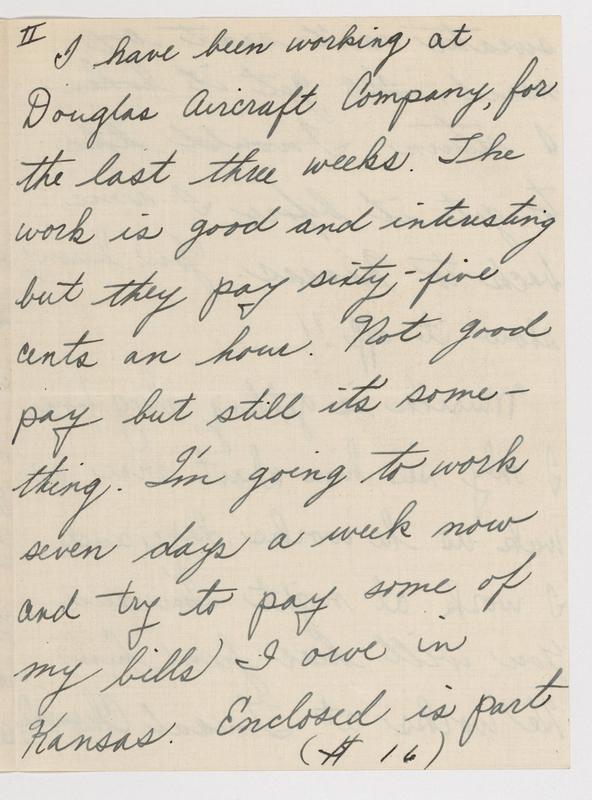 II
I have been working at
Douglas Aircraft Company, for
the last three weeks. The
work is good and interesting
but they pay sixty-five
cents an hour. Not good
pay but still it's some-
thing. I'm going to work
seven days a week now
and try to pay some of
my bills I owe in
Kansas. Enclosed is part
($ 16)